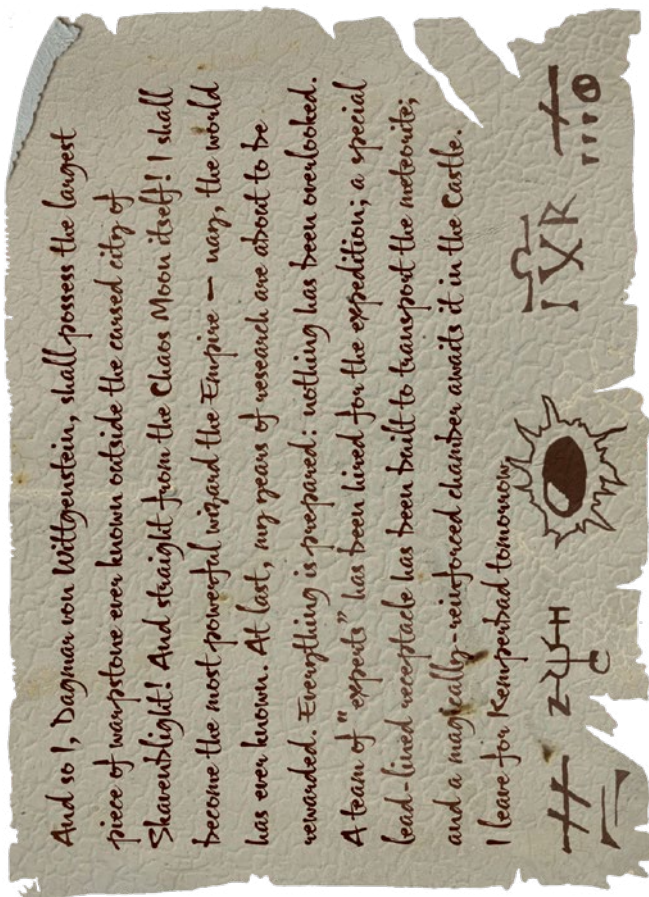 And so I, Dagmar von Wittgenstein, shall possess the largest
piece of warpstone ever known outside the cursed city of
Shavenblight! And straight from the Chaos Moon itself! I shall
become the most powerful wizard the Empire — nay, the world
has ever known. At last, my years of research are about to be
rewarded. Everything is prepared: nothing has been overlooked.
A team of "experts" has been hired for the expedition; a special
lead-lined receptacle has been built to transport the meteorite;
and a magically-reinforced chamber awaits it in the Castle.
I leave for Kemperbad tomorrow.